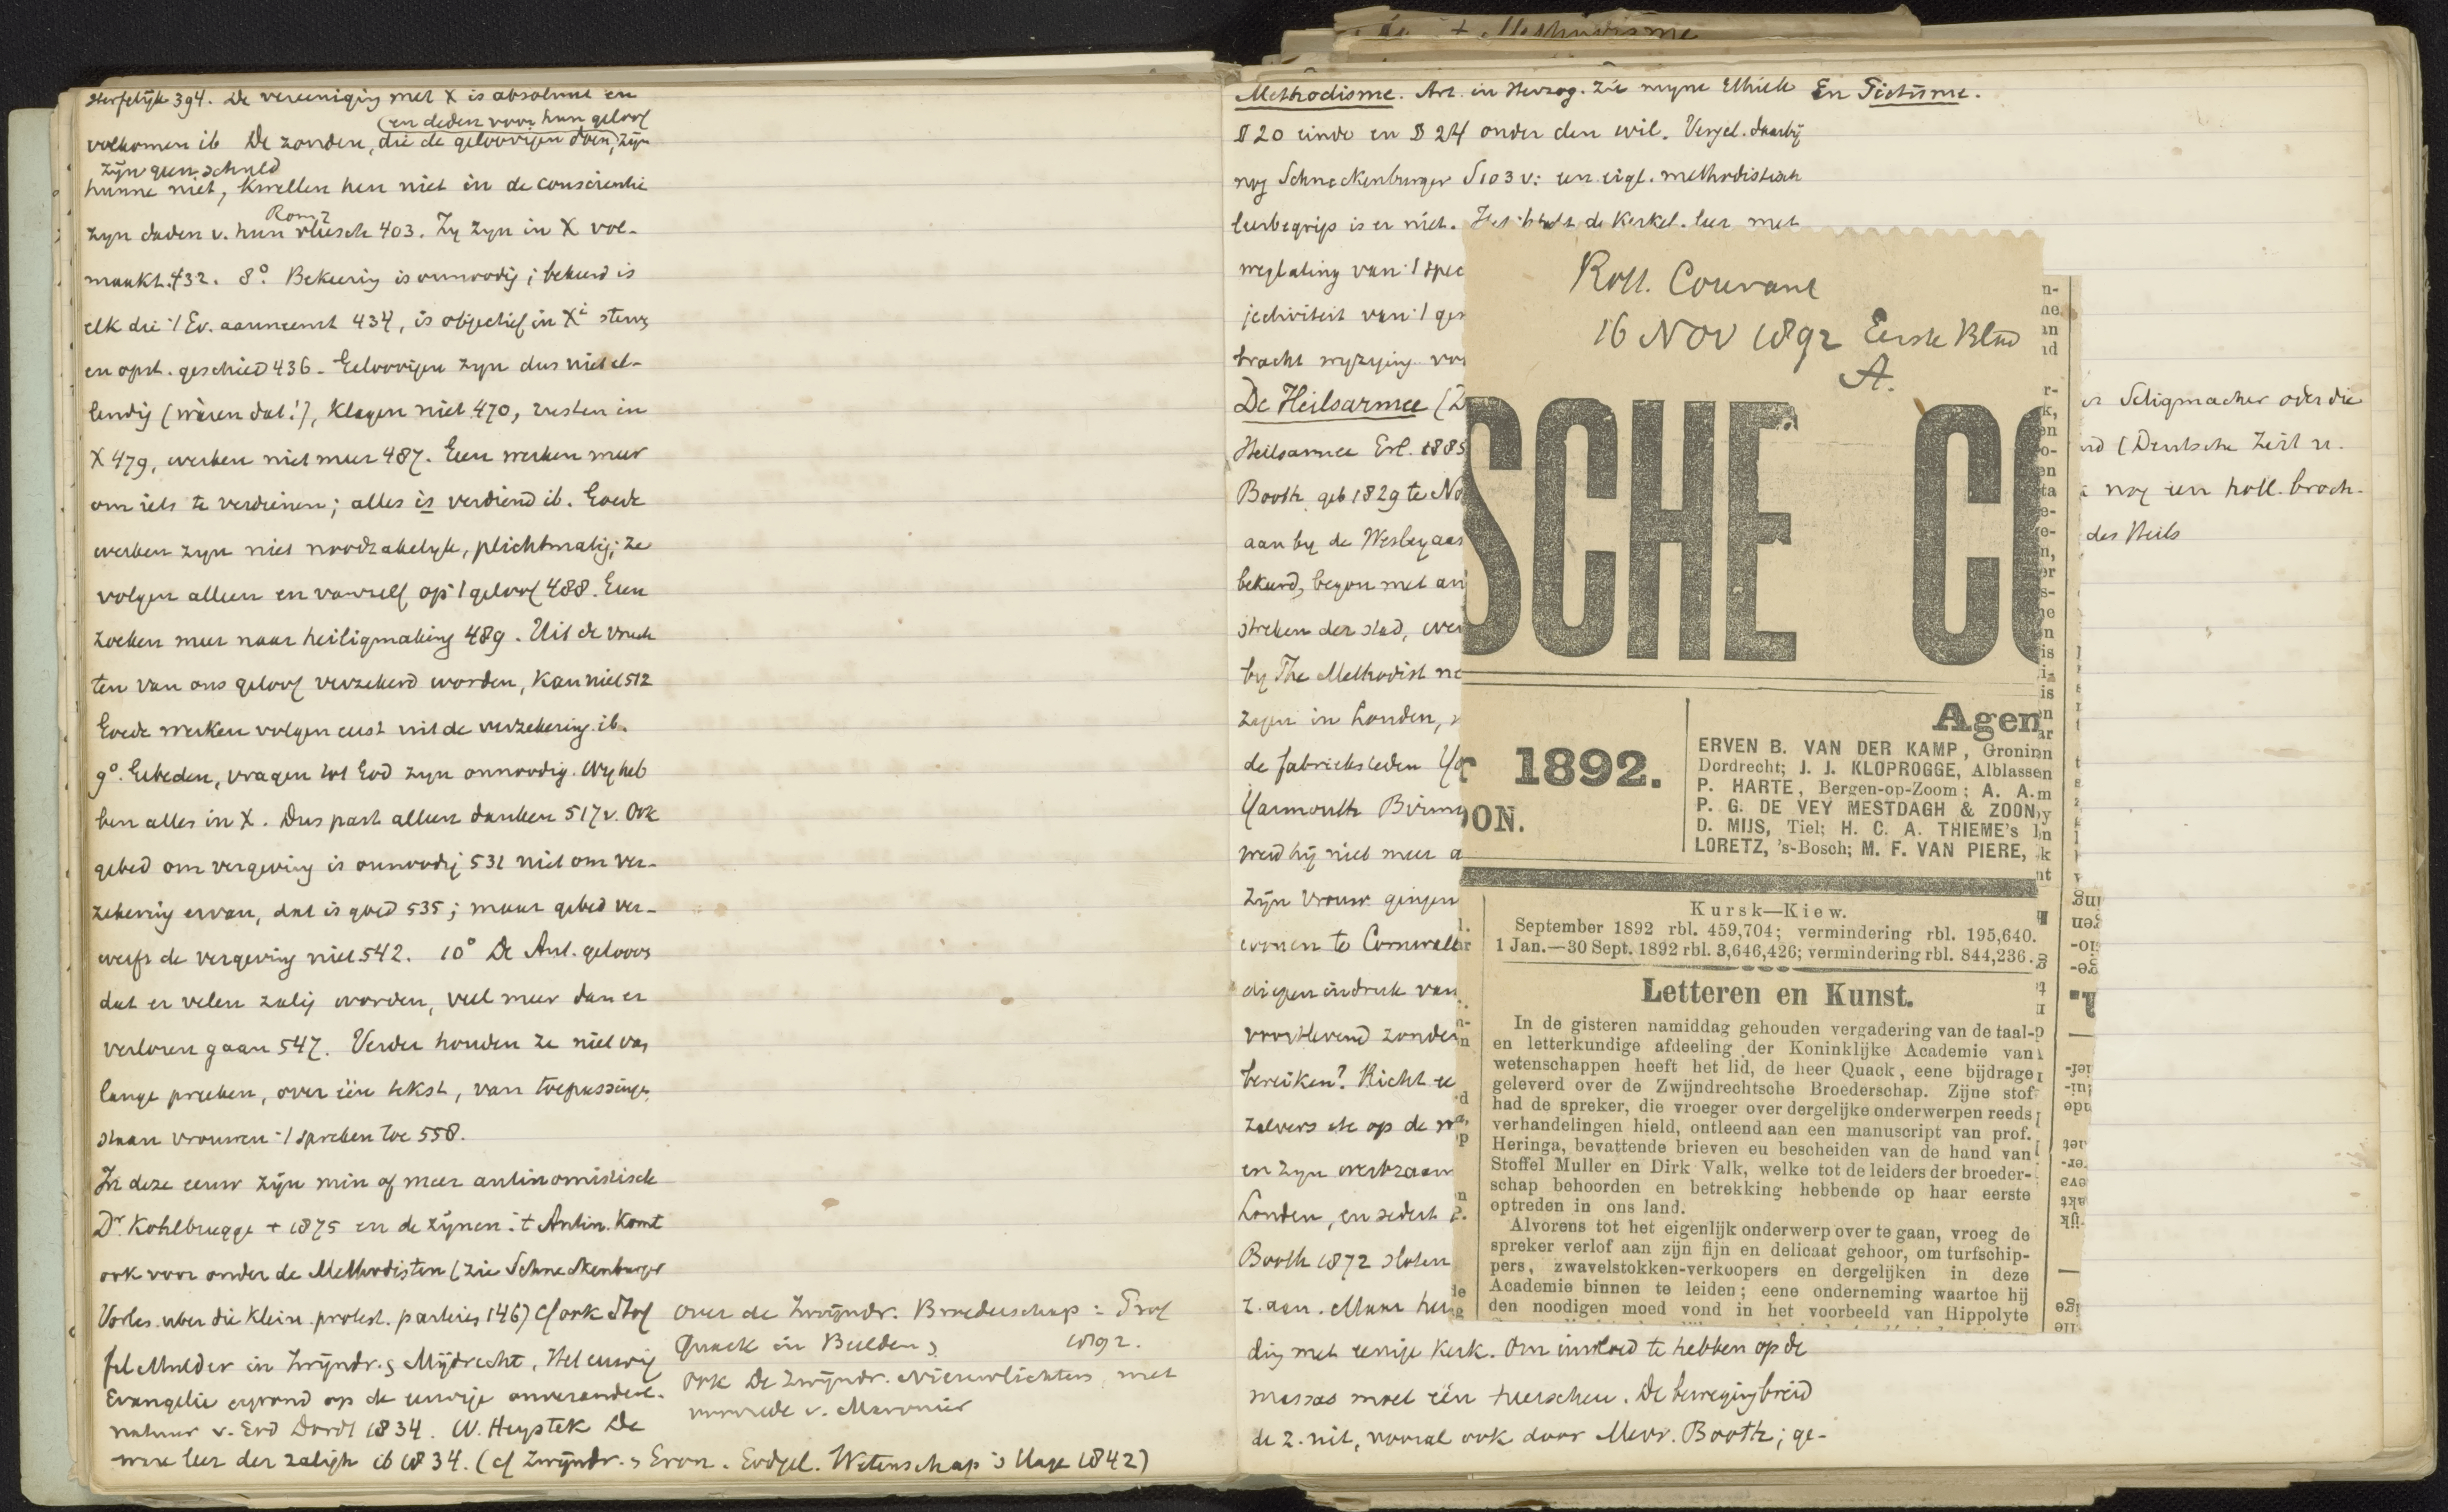 sterfelijk 394. De vereeniging met X is absoluut en
(en deden voor hun geloof
volkomen ib De zonden, die de geloovigen doen, zijn
zijn geen schuld
hunne niet, kwellen hen niet in de conscientie
Rom 7
zyn daden v. hun vleesch 403. Zy zyn in X vol-
maakt. 432. 8° Bekeering is onnoodig; bekeerd is
elk die 't Ev. aanneemt 434, is objectief in X
en opst. geschied 436. Geloovigen zyn dus niet el-
lendig (waren dat!), klagen niet 470, rusten in
X 479, werken niet meer 487. Geen werken meer
om iets te verdienen; alles is verdiend ib. Goede
werken zyn niet noodzakelyk, plichtmatig; ze
volgen alleen en vanzelf op 't geloof 488. Geen
zoeken meer naar heiligmaking 489. Uit de vruch
ten van ons geloof verzekerd worden, kan niet 512
Goede werken volgen eerst uit de verzekering ib.
9°. Gebeden, vragen tot God zyn onnoodig. Wy heb
ben alles in X. Dus past alleen danken 517 v. Ook
gebed om vergeving is onnoodig 531 niet om ver-
zekering ervan, dat is goed 535; maar gebed ver-
werft de vergeving niet 542. 10° De Ant. gelooven
dat er velen zalig worden, veel meer dan er
verloren gaan 547. Verder houden ze niet van
lange preeken, over één tekst, van toepassingen,
staan vrouwen 't spreken toe 558.
In deze eeuw zijn min of meer antinomistisch
Dr. Kohlbrugge + 1875 en de zijnen. 't Antin. komt
ook voor onder de Methodisten (zie Schneckenburger
Vorles. uber die klein. protest. parteien 146) cf ook Stof
fel Mulder in Zwijndr. & Mijdrecht, Het eeuwig
Evangelie gegrond op de eeuwige onverander.
natuur v. God Dordt 1834. W. Heystek De
ware leer der zaligh ib 1834. (cf Zwijndr. Godgel. Wetenschap 's Hage 1842)
over de Zwijndr. Broederschap: Prof
Quack in Beelden 1892.
Ook De Zwijndr. Nieuwlichters, met
voorrede v. Maronier
+ Methodisme
Methodisme. Art. in Herzog. Zie myne Ethiek En Pietisme.
§ 20 einde en § 24 onder den wil. Vergel. daarbij
nog Schneckenburger S 103 v: een eigl. methodistisch
leerbegrip is er niet. Het de Kerkel. leer met
weglating van 't spec
jectiviteit van 't ges
bracht wyziging vo
De Heilsarmee (
Heilsarmee Erl. 1885
Booth geb 1829 te No
aan by de Wesleyaas
bekeerd, begon met an
streken der stad, wer
by The Methodist ne
zegen in Londen,
de fabrieksteden Yo
Yarmouth Birm
werd hij niet meer a
zijn vrouw gingen
wonen te Cornwall
diepen indruk van
voortlevend zonder
bereiken? Richt
zalvers etc op de
en zyn werkzaam
Londen, en sedert
Booth 1872 sloten
z. aan. Maar
dig met eenige kerk. Om invloed te hebben op de
massas moet één heerschen. De beweging breid
de z. uit, vooral ook door Mevr. Booth; ge-
Seligmacher oder die
(Deutsche Zeit u.
nog een holl. broch.
des Heils
Rott. Courant
16 NOV 1892 Eerste Blad
A.
SCHE CO
1892.
OON.
Agen
ERVEN B. VAN DER KAMP, Gronin
Dordrecht; J. J. KLOPROGGE, Alblassen
P. HARTE, Bergen-op-Zoom; A. A.
P. G. DE VEY MESTDAGH & ZOON
D. MIJS, Tiel; H. C. A. THIEME's
LORETZ, 's-Bosch; M. F. VAN PIERE,
Kursk—Kiew.
September 1892 rbl. 459,704; vermindering rbl. 195,640.
1 Jan.—30 Sept. 1892 rbl. 3,646,426; vermindering rbl. 844,236.
Letteren en Kunst.
In de gisteren namiddag gehouden vergadering van de taal-
en letterkundige afdeeling der Koninklijke Academie van
wetenschappen heeft het lid, de heer Quack, eene bijdrage
geleverd over de Zwijndrechtsche Broederschap. Zijne stof
had de spreker, die vroeger over dergelijke onderwerpen reeds
verhandelingen hield, ontleend aan een manuscript van prof.
Heringa, bevattende brieven eu bescheiden van de hand van
Stoffel Muller en Dirk Valk, welke tot de leiders der broeder-
schap behoorden en betrekking hebbende op haar eerste
optreden in ons land.
Alvorens tot het eigenlijk onderwerp over te gaan, vroeg de
spreker verlof aan zijn fijn en delicaat gehoor, om turfschip-
pers, zwavelstokken-verkoopers en dergelijken in deze
Academie binnen te leiden; eene onderneming waartoe hij
den noodigen moed vond in het voorbeeld van Hippolyte